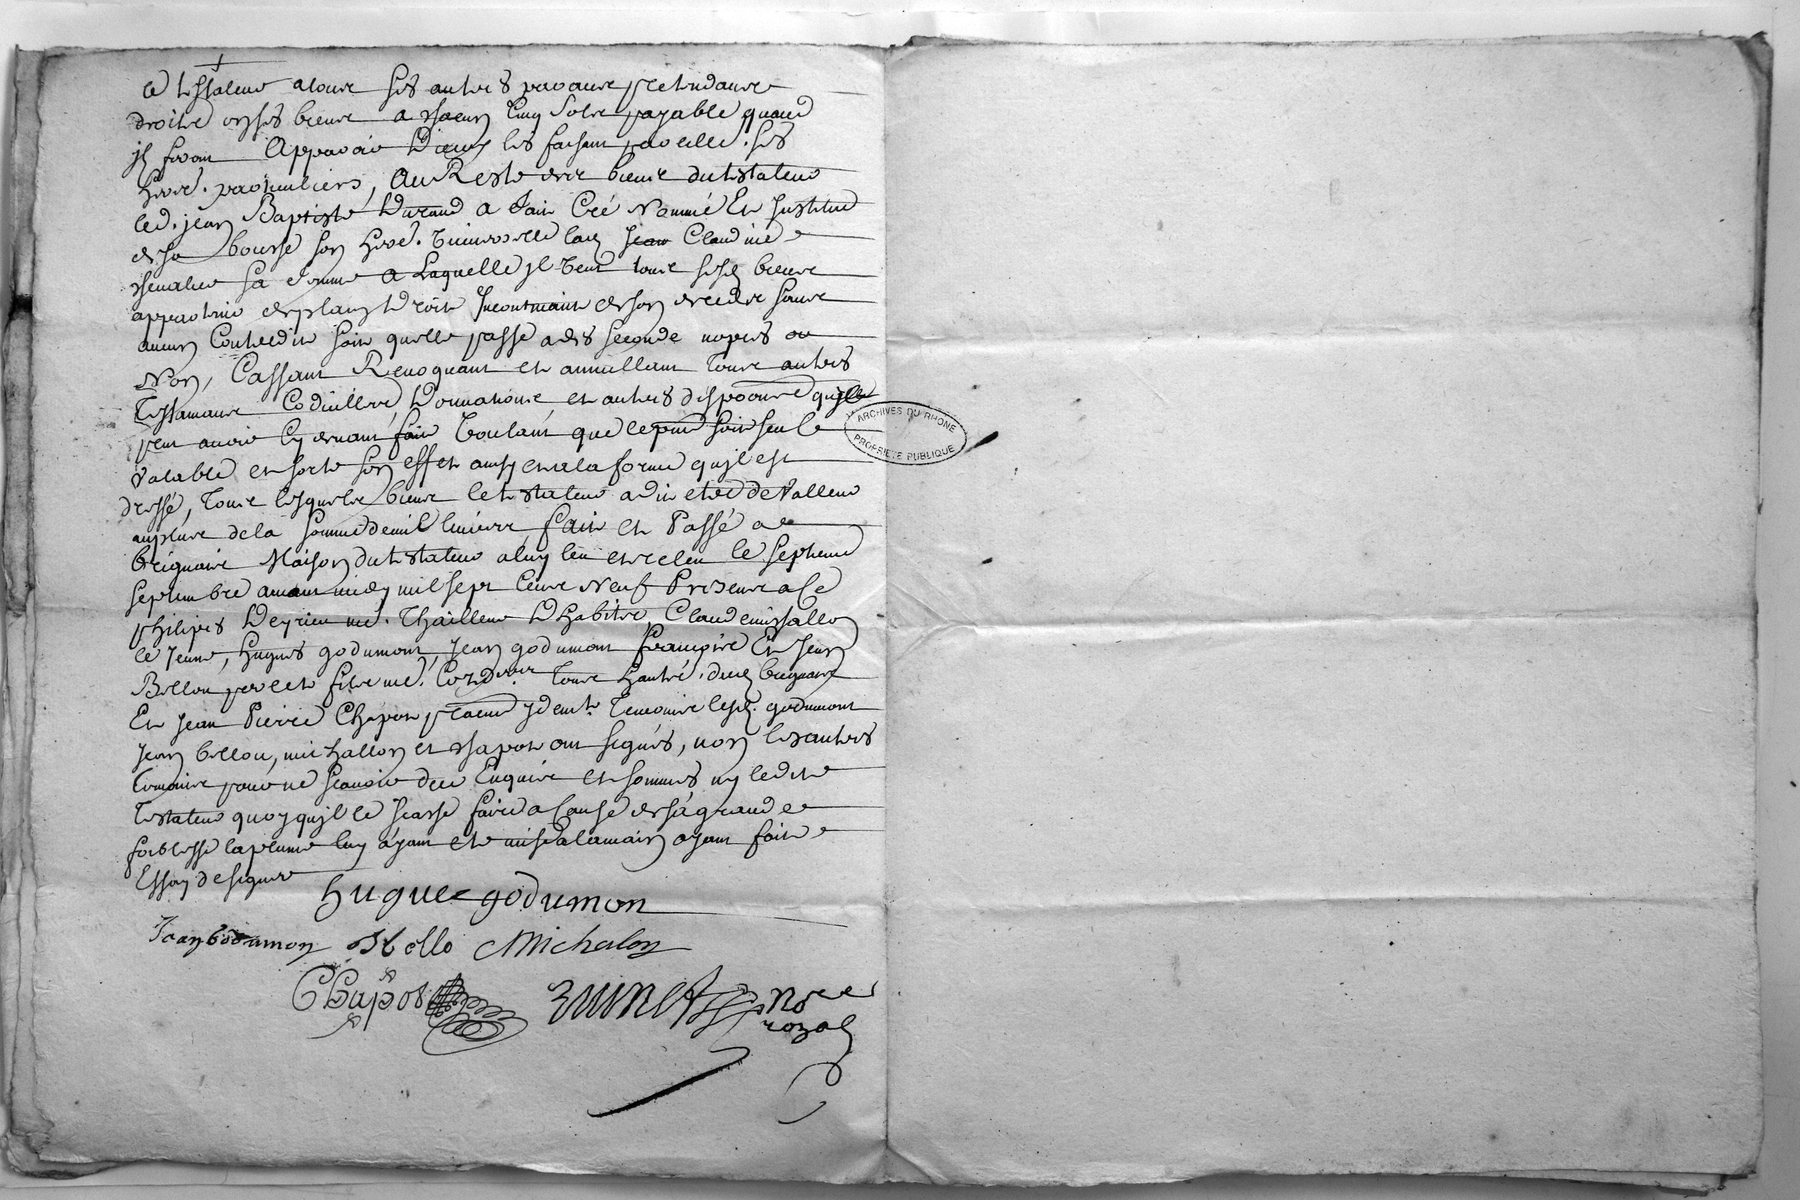 le testateur a tous ses autres parans pretendans
droits en ses biens a chacun cinq sols payable quand
il seront apparoir dieux les faisant pareille. ses
heret. particuliers, Au Reste des biens du testateur
led. jean Baptiste Durand a fait Créé Nommé Et Institué
de sa bouche son heret. universelle lad. Claudine
chevalier sa femme a Laquelle il veut tous sesd. biens
appartenir de plain droit Incontinant de son deceder sans
aucun Contredit soit quelle passe a des seconde nopces ou
Non, Cassant Revoquant et annullant Tous autres
Testamans Codicilles, Donnations et autres dispoons quil
peut avoir Cy devant fait voulant que le pnt soit seul
valable et sorte son effet ainsy et en la forme qu'il est
dressé, Tous lesquels biens le testateur a dit etre de valleur
au plus de la somme de mil livres, fait et Passé a
brignais Maison du testateur a luy leu et releu le septieme
septembre avant midy mil sept Cens Neuf Presens a Ce
philipes Deyrieu me. Thailleur D'habits, Claude michallon
le Jeune, hugues godumont, Jean godumont françois Et Jean
Bellou pere et fils me. Cord.ers Tous habt. dud. brignais
Et Jean Pierre Chapot pratt. ydemt. Temoins lesd. godumont
Jean bellou, michallon et chapot ont signés, non les autres
temoins pour ne scavoir de ce Enquis et sommés ny ledit
Testateur quoyqu'il le scache faire a cause de sa grande
foiblesse la plume luy ayant eté mise a la main ayant fait
Essay de signer
hugue godumon
Jean Godumon J bello Michalon
Chapot no.re
royal
ARCHIVES DU RHONE
PROPRIETE PUBLIQUE